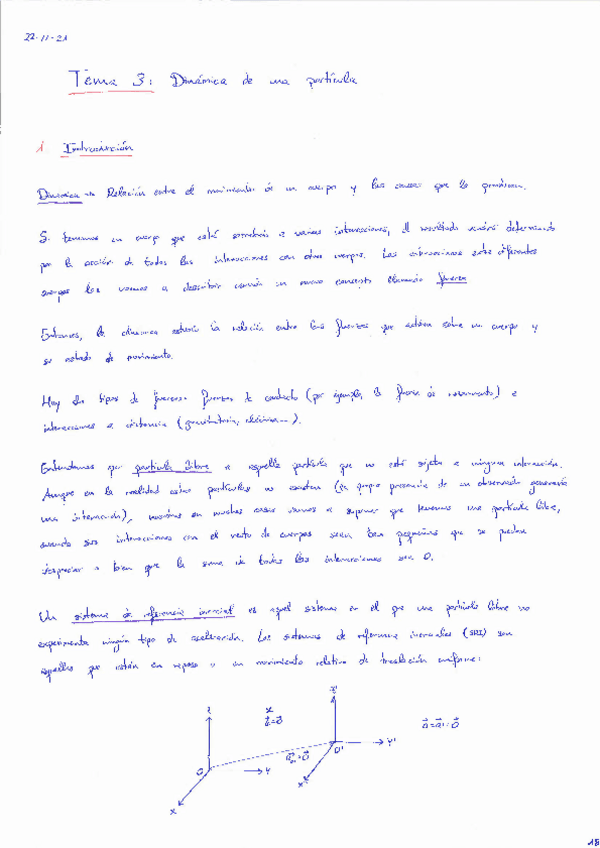 22-11-21
Tema 3: Dinámica de una partícula
1 Introducción
Dinámica → Relación entre el movimiento de un cuerpo y las causas que lo producen.
Si tenemos un cuerpo que está sometido a varias interacciones, el resultado vendrá determinado
por la acción de todas las interacciones con otros cuerpos. Las interacciones entre diferentes
cuerpos las vamos a describir usando un nuevo concepto llamado fuerza
Entonces, la dinámica estudia la relación entre las fuerzas que actúan sobre un cuerpo y
su estado de movimiento.
Hay dos tipos de fuerzas: fuerzas de contacto (por ejemplo, la fuerza de rozamiento) e
interacciones a distancia (gravitatoria, eléctrica...).
Entendemos por partícula libre a aquella partícula que no está sujeta a ninguna interacción.
Aunque en la realidad estas partículas no existen (la propia presencia de un observador generaría
una interacción), nosotros en muchos casos vamos a suponer que tenemos una partícula libre,
cuando sus interacciones con el resto de cuerpos sean tan pequeñas que se puedan
despreciar o bien que la suma de todas las interacciones sea 0.
Un sistema de referencia inercial es aquel sistema en el que una partícula libre no
experimenta ningún tipo de aceleración. Los sistemas de referencia inerciales (SRI) son
aquellos que están en reposo o en movimiento relativo de traslación uniforme:
z x z'
a⃗=0⃗ a⃗=a⃗'=0⃗
O Y O' Y'
x x'
18